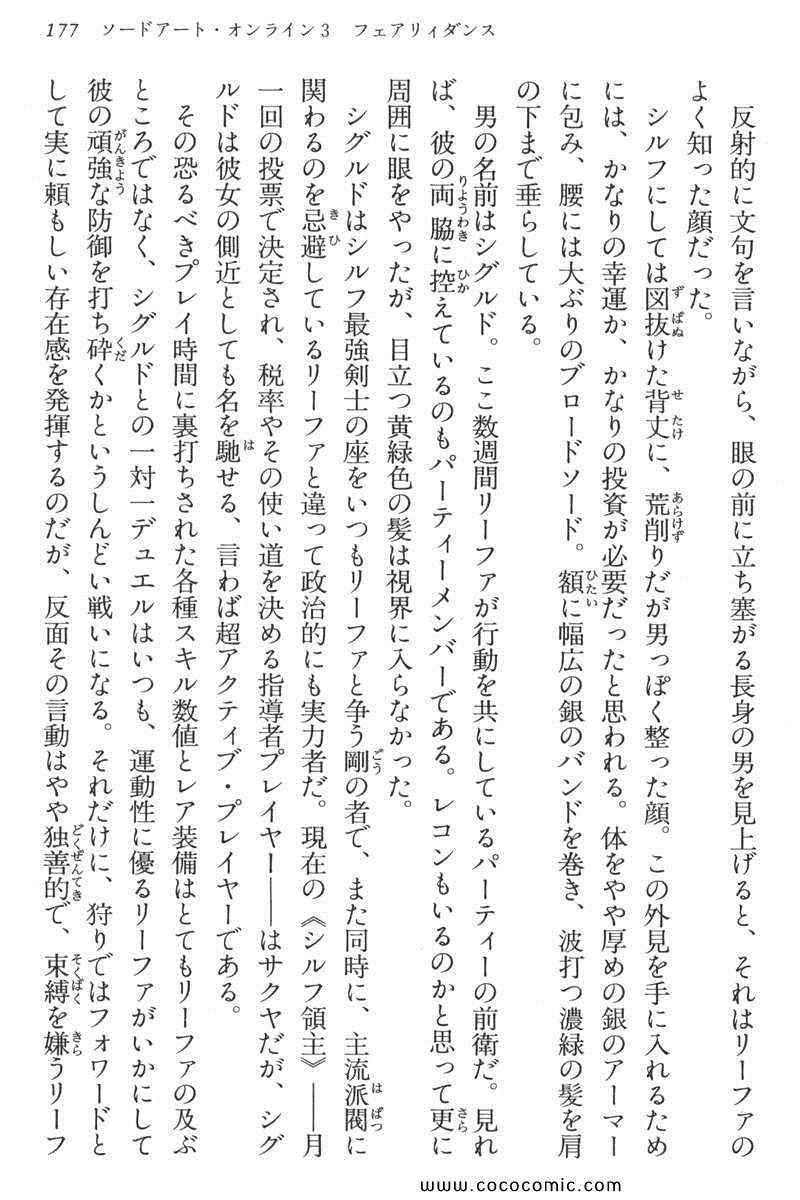 177 ソードアート・オンライン3 フェアリィダンス
反射的に文句を言いながら、眼の前に立ち塞がる長身の男を見上げると、それはリーファの
よく知った顔だった。
シルフにしては図抜けた背丈に、荒削りだが男っぽく整った顔。この外見を手に入れるため
には、かなりの幸運か、かなりの投資が必要だったと思われる。体をやや厚めの銀のアーマー
に包み、腰には大ぶりのブロードソード。額に幅広の銀のバンドを巻き、波打つ濃緑の髪を肩
の下まで垂らしている。
男の名前はシグルド。ここ数週間リーファが行動を共にしているパーティーの前衛だ。見れ
ば、彼の両脇に控えているのもパーティーメンバーである。レコンもいるのかと思って更に
周囲に眼をやったが、目立つ黄緑色の髪は視界に入らなかった。
シグルドはシルフ最強剣士の座をいつもリーファと争う剛の者で、また同時に、主流派閥に
関わるのを忌避しているリーファと違って政治的にも実力者だ。現在の《シルフ領主》――月
一回の投票で決定され、税率やその使い道を決める指導者プレイヤー――はサクヤだが、シグ
ルドは彼女の側近としても名を馳せる、言わば超アクティブ・プレイヤーである。
その恐るべきプレイ時間に裏打ちされた各種スキル数値とレア装備はとてもリーファの及ぶ
ところではなく、シグルドとの一対一デュエルはいつも、運動性に優るリーファがいかにして
彼の頑強な防御を打ち砕くかというしんどい戦いになる。それだけに、狩りではフォワードと
して実に頼もしい存在感を発揮するのだが、反面その言動はやや独善的で、束縛を嫌うリーフ
www.cococomic.com/